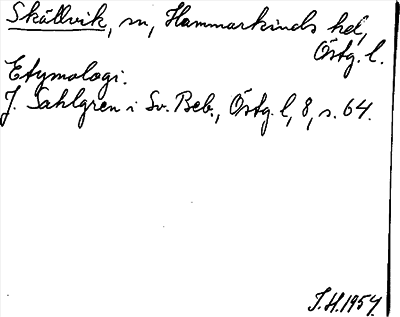 Skällvik, sn, Hammarkinds hd,
Östg. l.
Etymologi.
J. Sahlgren i Sv. Beb., Östg. l, 8, s. 64.
J.H. 1954.